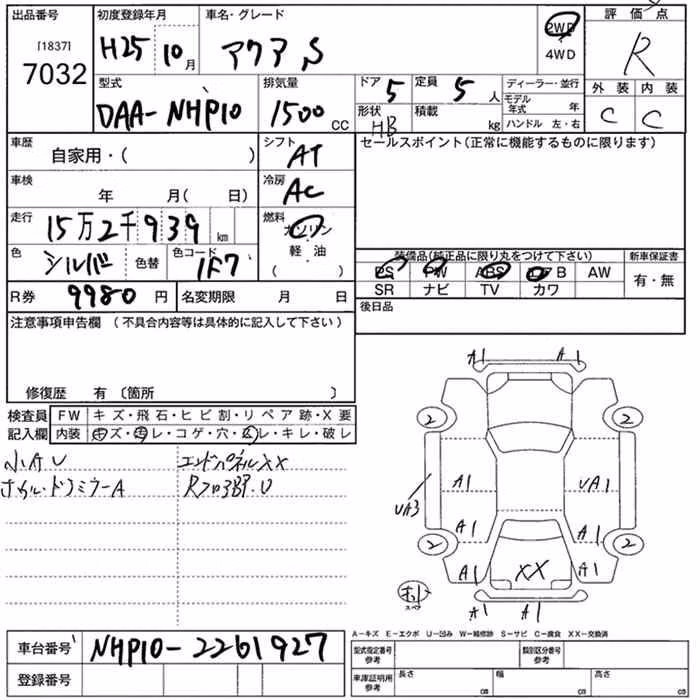 出品番号 初度登録年月 車名・グレード 評価点
[1837] H25 10月 アクア S 2WD R
7032 4WD
型式 排気量 ドア 5 定員 5人 ディーラー・並行 外装 内装
DAA-NHP10 1500cc 形状 HB 積載 kg モデル年式 年 C C
ハンドル 左・右
車歴 自家用・( ) シフト AT セールスポイント(正常に機能するものに限ります)
車検 年 月( 日) 冷房 AC
走行 15万2千939km 燃料 ガソリン
色 シルバー 色替 色コード 1F7 軽・油 ( )
装備品(純正品に限り丸をつけて下さい) 新車保証書
PS PW ABS エアB AW 有・無
SR ナビ TV カワ
R券 9980円 名変期限 月 日
後日品
注意事項申告欄(不具合内容等は具体的に記入して下さい)
修復歴 有〔箇所 〕
検査員 FW キズ・飛石・ヒビ割・リペア跡・X要
記入欄 内装 キズ・汚レ・コゲ・穴・スレ・キレ・破レ
小A U エンドパネルXX
ドアミラーA Rフロア部.U
A1 A1
2 2
A1 UA1
UA3
A1 A1
2 2
A1 XX A1
A1 A1
A-キズ E-エクボ U-凹み W-補修跡 S-サビ C-腐食 XX-交換済
車台番号 NHP10-2261927
型式指定番号 参考 類別区分番号 参考
登録番号
車庫証明用 参考 長さ cm 幅 cm 高さ cm